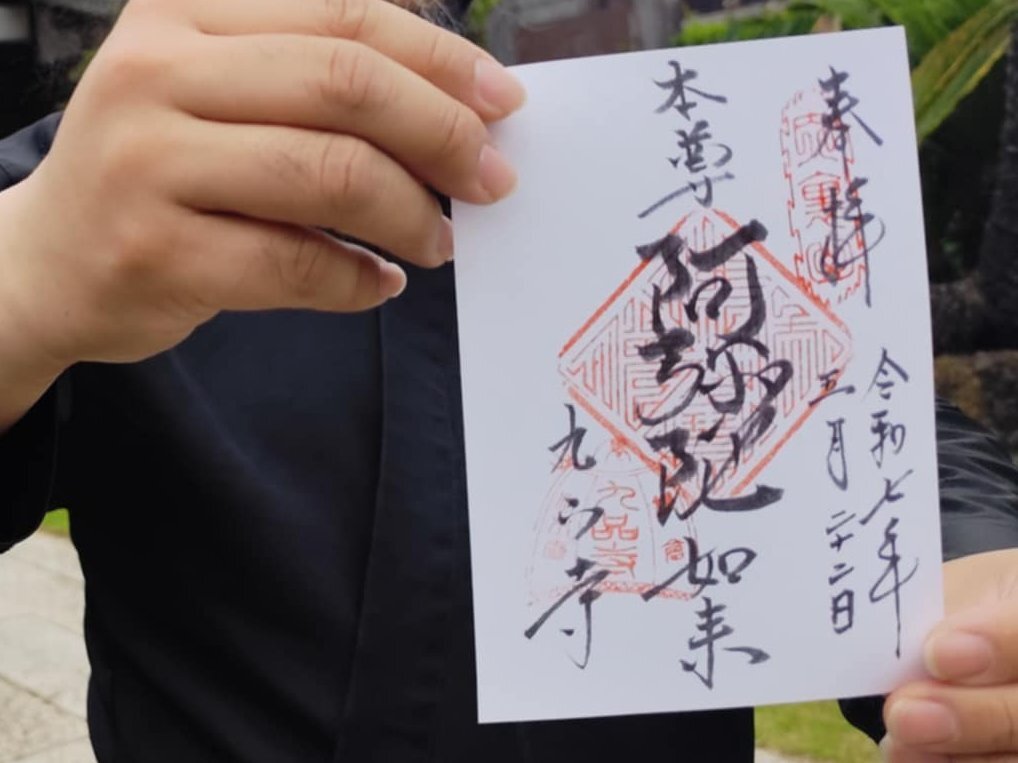 奉拝
令和七年
五月二十二日
本尊 阿弥陀如来
九品寺
九品寺